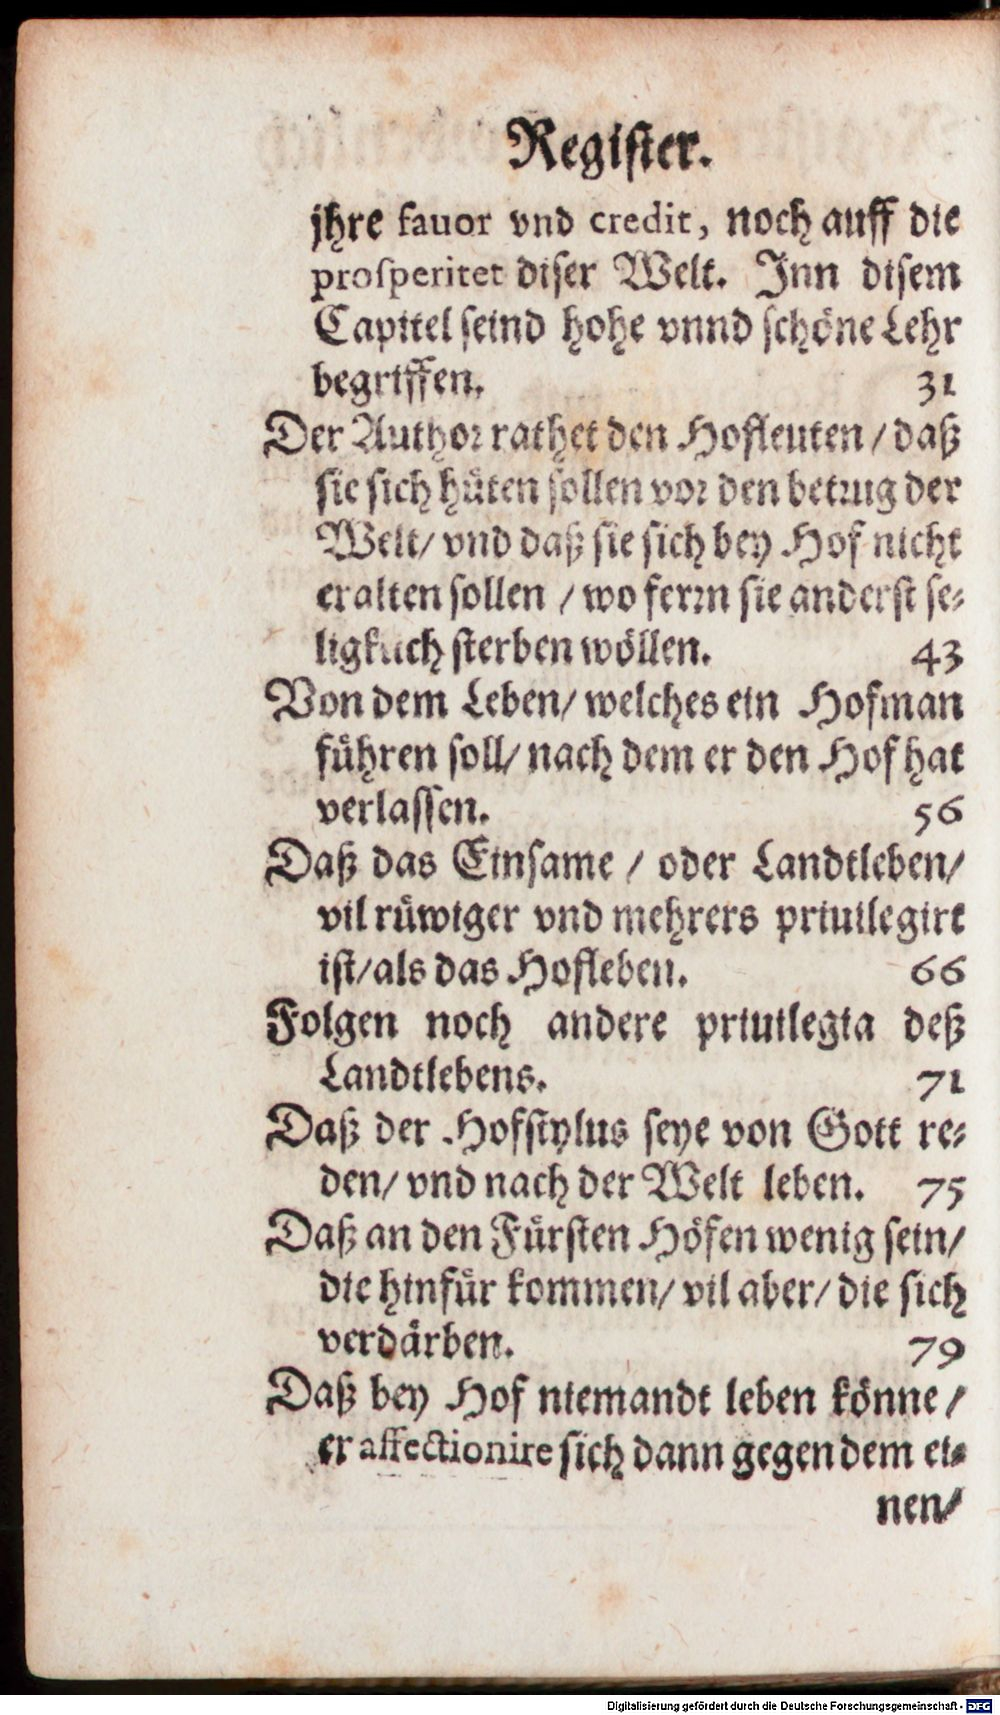 Register.
jhre fauor vnd credit, noch auff die
prosperitet diser Welt. Inn disem
Capitel seind hohe vnnd schöne Lehr
begriffen. 31
Der Author rathet den Hofleuten / daß
sie sich hüten sollen vor den betrug der
Welt / vnd daß sie sich bey Hof nicht
eralten sollen / wo ferrn sie anderst se-
ligklich sterben wöllen. 43
Von dem Leben / welches ein Hofman
führen soll / nach dem er den Hof hat
verlassen. 56
Daß das Einsame / oder Landtleben /
vil rüwiger vnd mehrers priuilegirt
ist / als das Hofleben. 66
Folgen noch andere priuilegia deß
Landtlebens. 71
Daß der Hofstylus seye von Gott re-
den / vnd nach der Welt leben. 75
Daß an den Fürsten Höfen wenig sein /
die hinfür kommen / vil aber / die sich
verdärben. 79
Daß bey Hof niemandt leben könne /
er affectionire sich dann gegen dem ei-
nen /
Digitalisierung gefördert durch die Deutsche Forschungsgemeinschaft - DFG